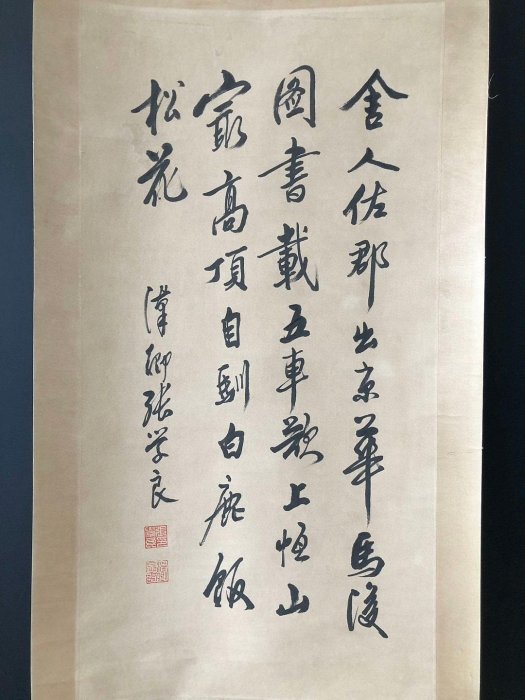 舍人佐郡出京華馬後
圖書載五車欲上恒山
㝡高頂自馴白鹿飯
松花
漢卿張学良